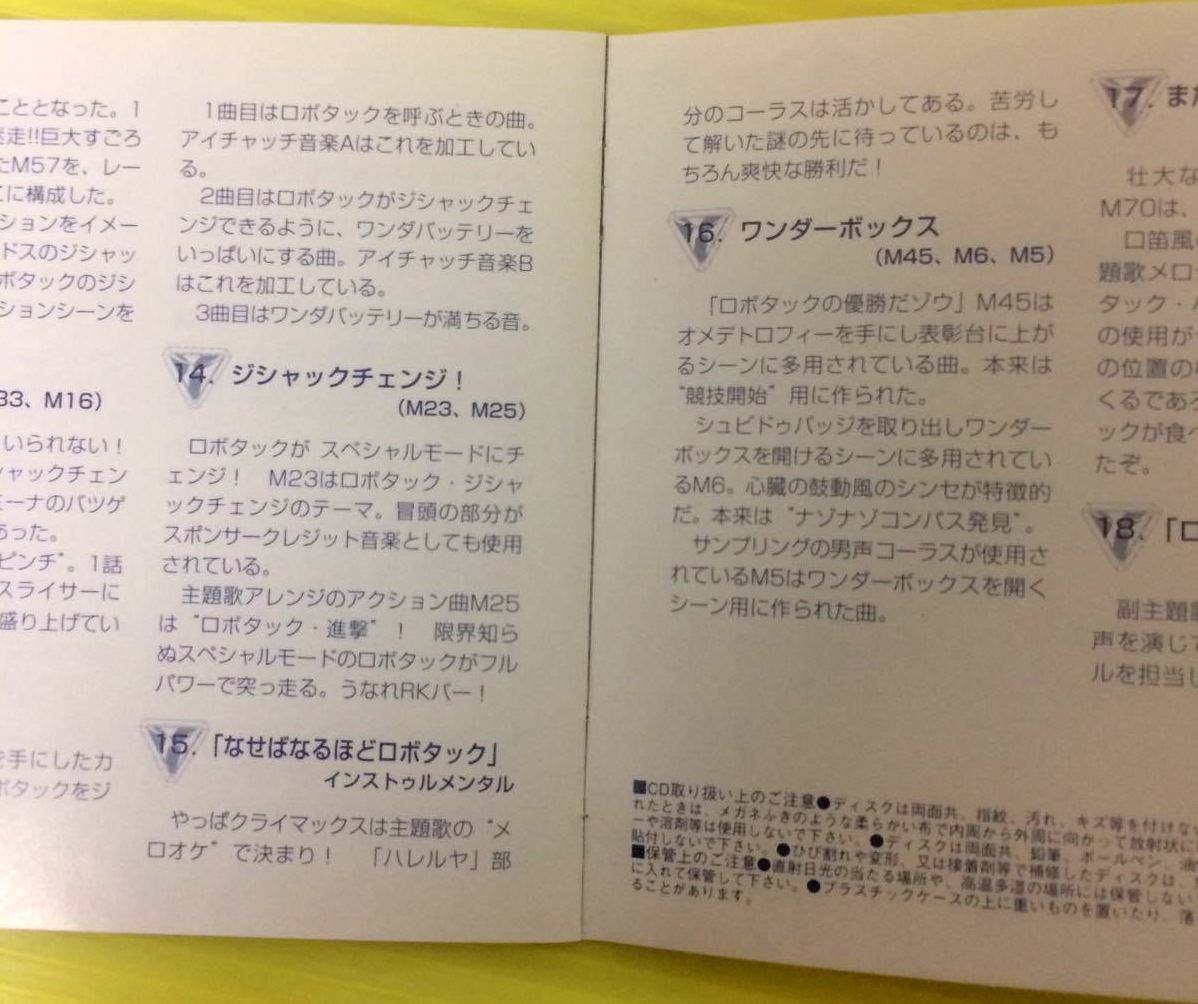 こととなった。1
走!!巨大すごろ
たM57を、レー
に構成した。
ションをイメー
ドスのジシャッ
ボタックのジシ
ションシーンを
33、M16)
いられない！
シャックチェン
ミーナのバツゲ
あった。
ピンチ”。1話
スライサーに
盛り上げてい
を手にしたカ
ボタックをジ
1曲目はロボタックを呼ぶときの曲。
アイチャッチ音楽Aはこれを加工してい
る。
2曲目はロボタックがジシャックチェ
ンジできるように、ワンダバッテリーを
いっぱいにする曲。アイチャッチ音楽B
はこれを加工している。
3曲目はワンダバッテリーが満ちる音。
14. ジシャックチェンジ！
(M23、M25)
ロボタックが スペシャルモードにチ
ェンジ！ M23はロボタック・ジシャ
ックチェンジのテーマ。冒頭の部分が
スポンサークレジット音楽としても使用
されている。
主題歌アレンジのアクション曲M25
は“ロボタック・進撃”！ 限界知ら
ぬスペシャルモードのロボタックがフル
パワーで突っ走る。うなれRKバー！
15.「なせばなるほどロボタック」
インストゥルメンタル
やっぱクライマックスは主題歌の“メ
ロオケ”で決まり！ 「ハレルヤ」部
分のコーラスは活かしてある。苦労し
て解いた謎の先に待っているのは、も
ちろん爽快な勝利だ！
16. ワンダーボックス
(M45、M6、M5)
「ロボタックの優勝だゾウ」M45は
オメデトロフィーを手にし表彰台に上が
るシーンに多用されている曲。本来は
“競技開始”用に作られた。
シュビドゥバッジを取り出しワンダー
ボックスを開けるシーンに多用されてい
るM6。心臓の鼓動風のシンセが特徴的
だ。本来は“ナゾナゾコンパス発見”。
サンプリングの男声コーラスが使用さ
れているM5はワンダーボックスを開く
シーン用に作られた曲。
■CD取り扱い上のご注意●ディスクは両面共、指紋、汚れ、キズ等を付けない
れたときは、メガネふきのような柔らかい布で内周から外周に向かって放射状に
ーや溶剤等は使用しないで下さい。●ディスクは両面共、鉛筆、ボールペン、油
貼付しないで下さい。●ひび割れや変形、又は接着剤等で補修したディスクは、
■保管上のご注意●直射日光の当たる場所や、高温多湿の場所には保管しない
に入れて保管して下さい。●プラスチックケースの上に重いものを置いたり、落
ることがあります。
17. また
壮大な
M70は、
口笛風
題歌メロ
タック・
の使用が
の位置の
くるであろ
ックが食べ
たぞ。
18.「ロ
副主題
声を演じ
ルを担当し